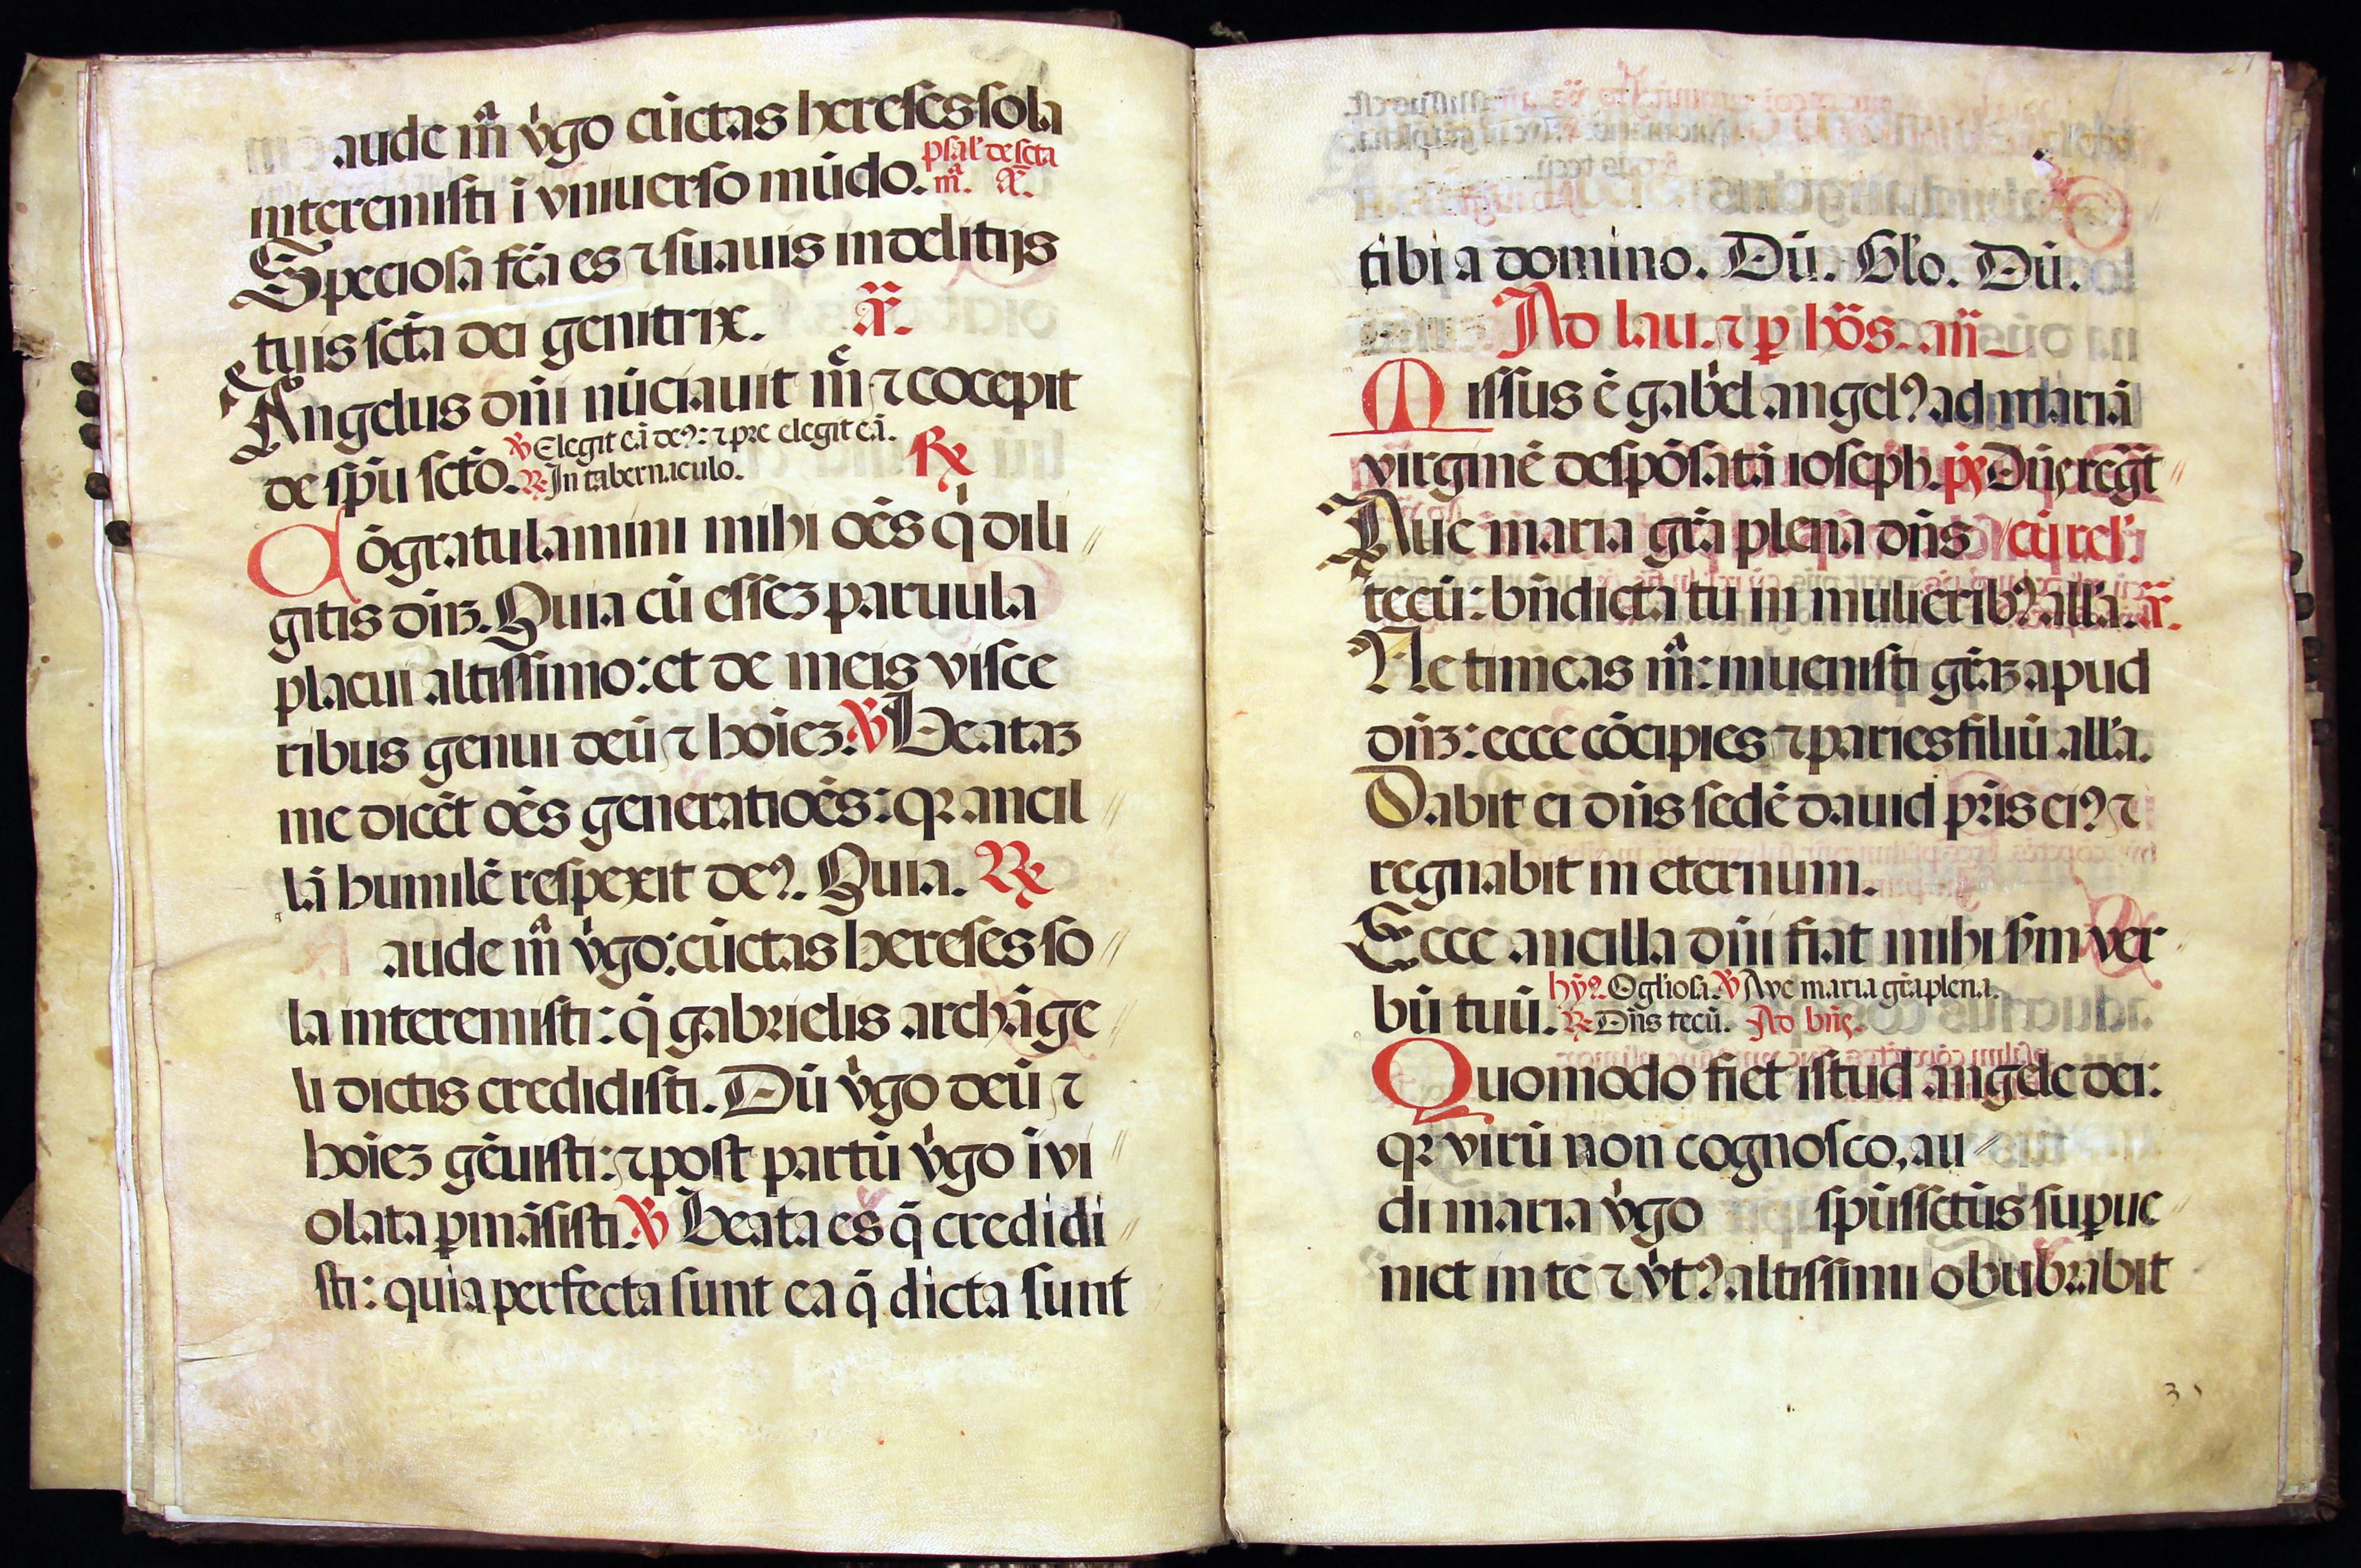 aude m̄ v̓go cūctas hereses sola
interemisti ī vniuerso mūdo. psal' de scta
m̄. a͞.
Speciosa fc̄a es ⁊ suauis in delitijs
tuis sct̄a dei genitrix. a͞.
Angelus dn̄i nūciauit m̄ ⁊ cocepit
de sp̄u sct̄o. ℣ Elegit eā deꝰ: ⁊ pre elegit eā. ℟
℟ In tabernaculo.
ōgratulamini mihi oēs q̓ dili
gitis dn̄ꝫ. Quia cū esseꝫ paruula
placui altissimo: et de meis visce
ribus genui deū ⁊ hoīeꝫ. ℣ Beataꝫ
me dicēt oēs generatiōes: qꝛ ancil
lā humilē respexit deꝰ. Quia. ℟
aude m̄ v̓go: cūctas hereses so
la interemisti: q̄ gabrielis archāge
li dictis credidisti. Dū v̓go deū ⁊
hoīeꝫ gēuisti: ⁊ post partū v̓go īvi
olata ꝑmāsisti. ℣ Beata es q̄ credidi
sti: quia perfecta sunt ea q̄ dicta sunt
tibi a domino. Dū. Gl'o. Dū.
Ad lau. ⁊ ꝑ hōs. an̄
Missus ē gab̓el angelꝰ ad mariā
virginē despōsatā ioseph. p̄s Dn̄s reḡt
Aue maria gr̄a plena dn̄s cū rel':
tecū: bn̄dicta tu in mulieribꝰ all'a. a͞.
Ne timeas m̄: inuenisti gr̄aꝫ apud
dn̄ꝫ: ecce cōcipies ⁊ paries filiū all'a.
Dabit ei dn̄s sedē dauid pr̄is eiꝰ ⁊
regnabit in eternum.
Ecce ancilla dn̄i fiat mihi s̄m ver
bū tuū. hȳꝰ. O gl'iosa. ℣ Ave maria gr̄a plena.
℟ Dn̄s tecū. Ad bn̄s.
Quomodo fiet istud angele dei:
qꝛ virū non cognosco, au
di maria v̓go sp̄us sctūs suꝑue
niet in te ⁊ v̓tꝰ altissimi obūbrabit
3